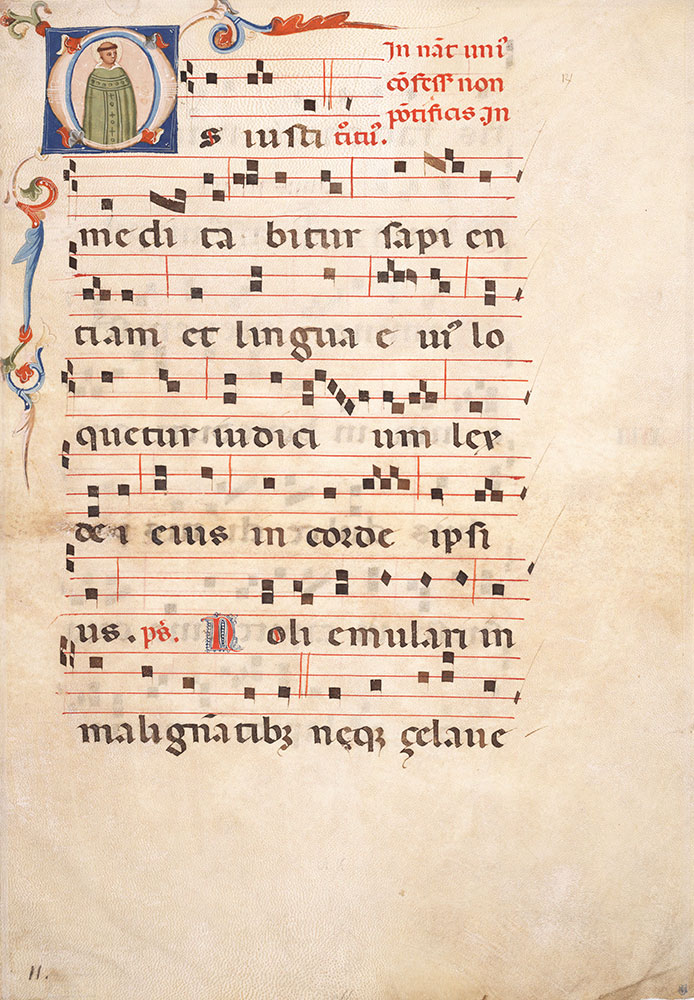 In nāt uniꝰ
cōfess non
pōtificis. In
Os iusti tͦitꝰ.
medi ta bitur sapi en
tiam et lingua e iuſ lo
quetur iudici um lex
de i eius in corde ipsi
us. ps̄. Noli emulari in
malignātibꝫ neqꝫ çelave
11.